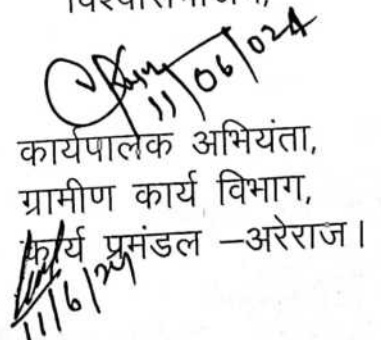 विश्वासभाजन,
11/06/024
कार्यपालक अभियंता,
ग्रामीण कार्य विभाग,
कार्य प्रमंडल –अरेराज।
11/6/24